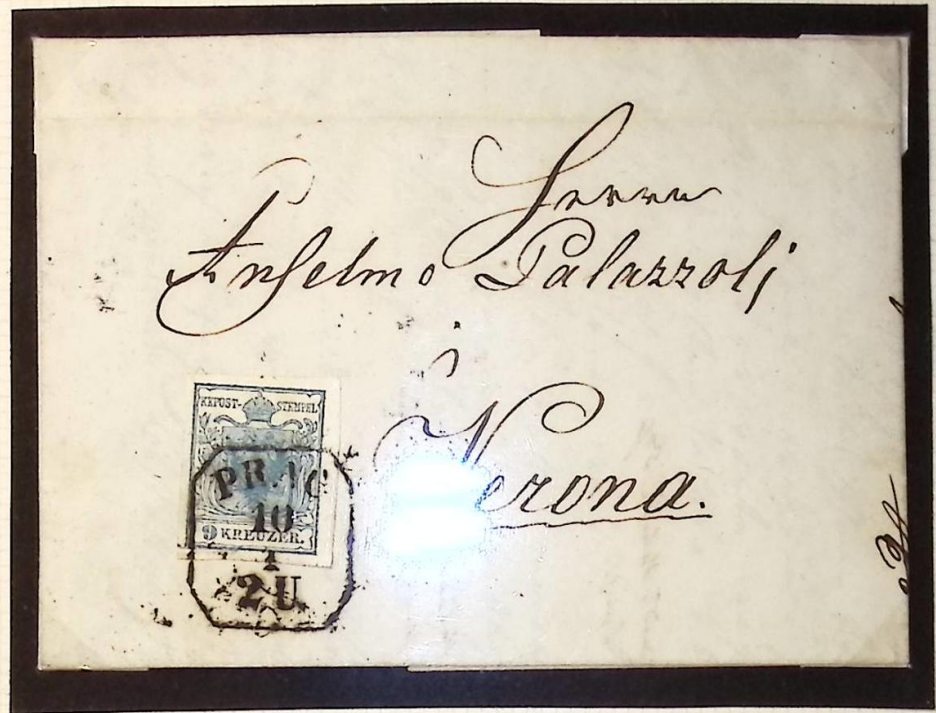 Herrn
Anselmo Palazzoli
i
Verona.
KKPOST-STEMPEL
9 KREUZER.
PRAG
10
1
2 U.